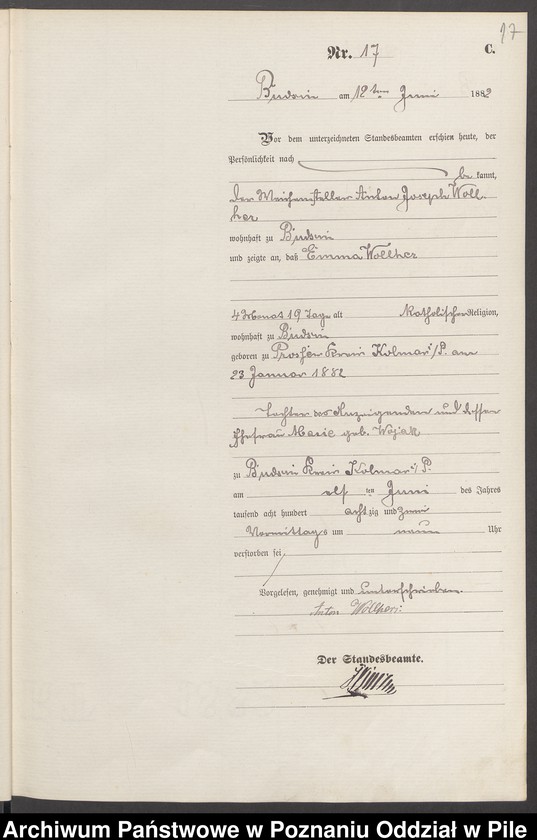 17
Nr. 17 C.
Budsin am 12ten Juni 1882
Vor dem unterzeichneten Standesbeamten erschien heute, der
Persönlichkeit nach
be kannt,
der Weichensteller Anton Joseph Woll-
her
wohnhaft zu Budsin
und zeigte an, daß Emma Wollher
4 Monat 19 Tage alt katholischer Religion,
wohnhaft zu Budsin
geboren zu Kreis Kolmar i/P. am
23 Januar 1882
Tochter des Anzeigenden und dessen
Ehefrau Marie geb. Wojak
zu Budsin Kreis Kolmar i/P.
am elf ten Juni des Jahres
tausend acht hundert acht zig und zwei
Vormittags um neun Uhr
verstorben sei,
Vorgelesen, genehmigt und unterschrieben.
Anton Wollher
Der Standesbeamte.
Archiwum Państwowe w Poznaniu Oddział w Pile